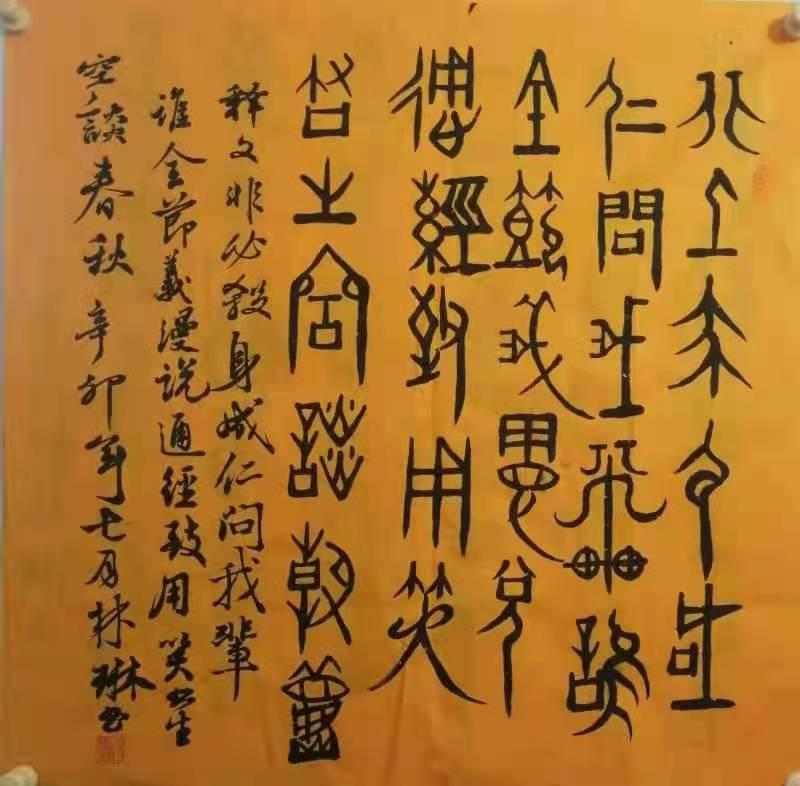 非必殺身成
仁問我輩誰
全節義漫說
通經致用笑
書生空談春秋
释文非必殺身成仁问我輩
谁全節義漫说通經致用笑书生
空談春秋辛卯年七月林琳书